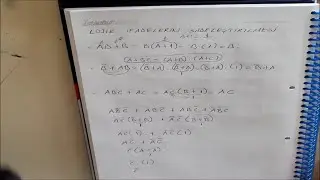 LOJİK İFADELERİN SADELEŞTİRİLMESİ
- AB+B = B(A+1) = B(1) = B
A+BC = (A+B)·(A+C)
- B+AB = (B+A)·(B+B) = (B+A)·(1) = B+A
- ABC + AC = AC(B+1) = AC
ABC + ABC + ABC + ABC
AC(B+B) + AC(B+B)
AC(1) + AC(1)
AC + AC
C(A+A)
C(1)
C